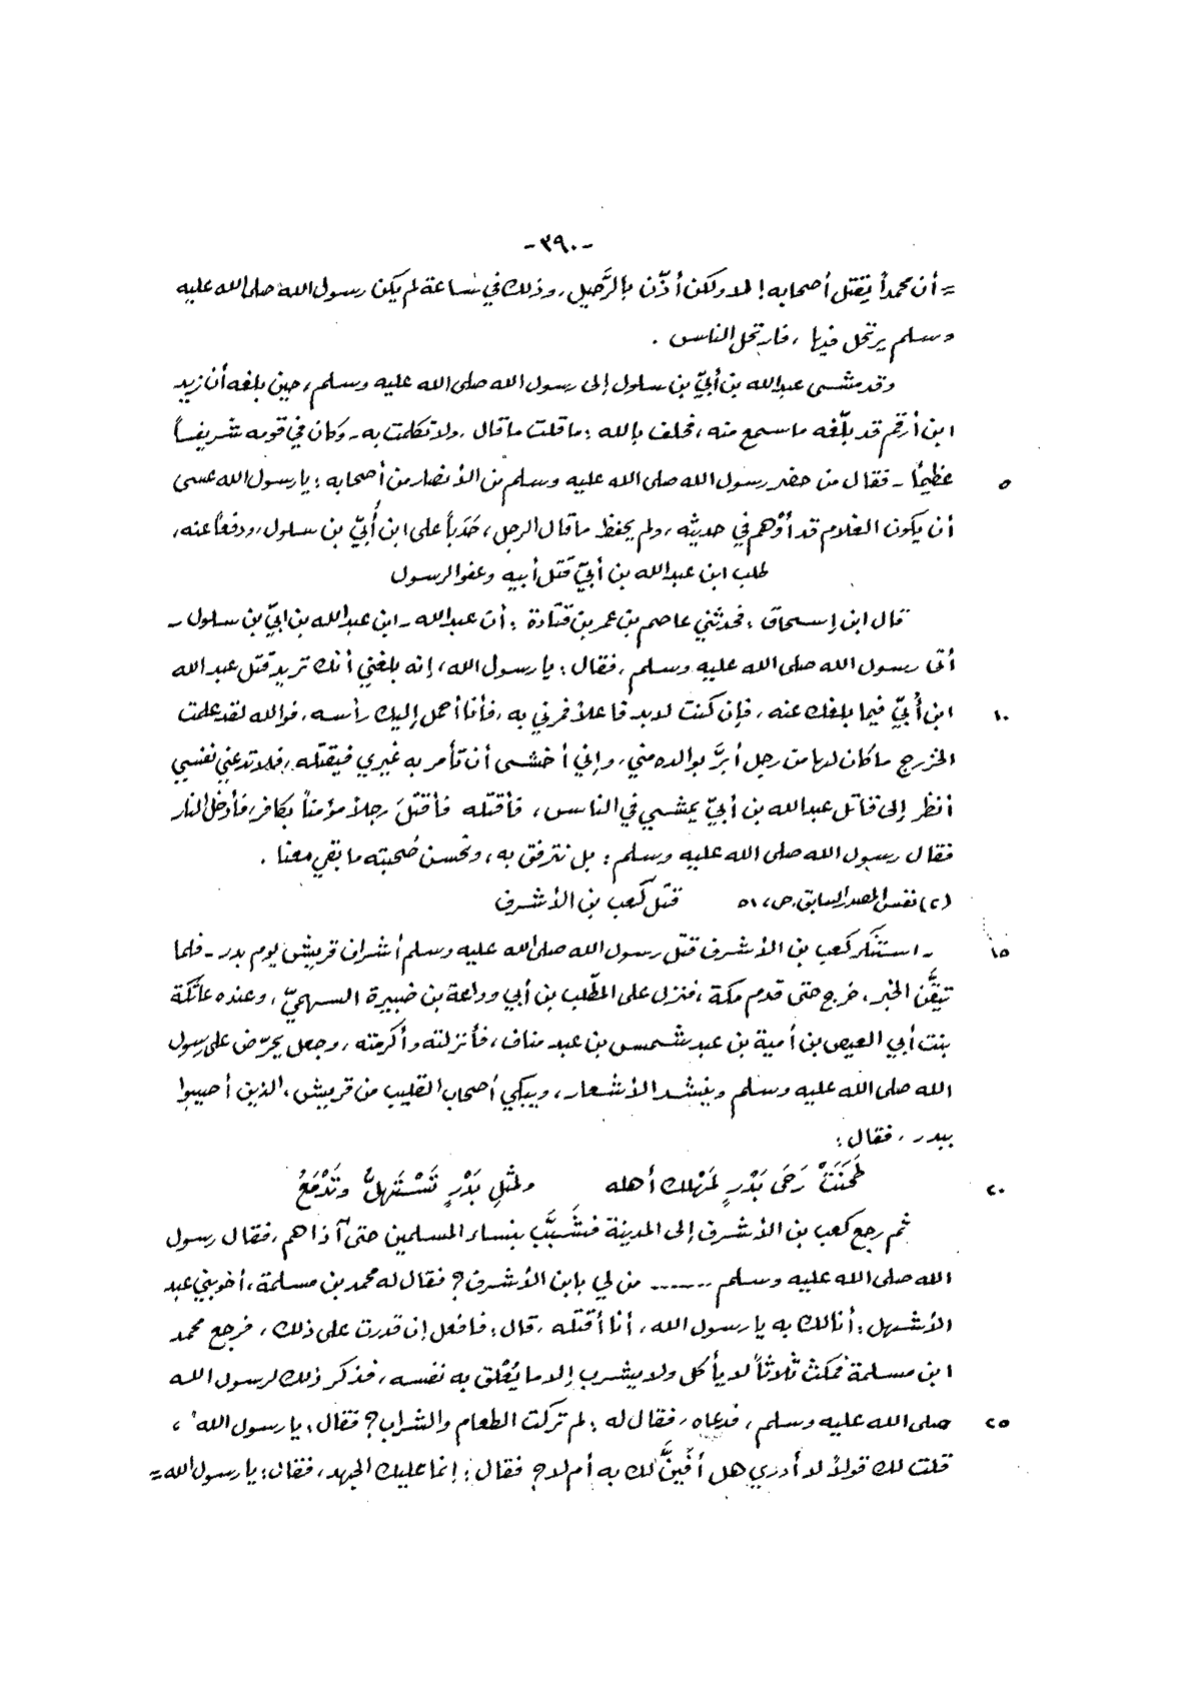 -٣٩٠-
= أن محمداً يقتل أصحابه! لا ولكن أذّن بالرَّحيل، وذلك في ساعة لم يكن رسول الله صلى الله عليه
وسلم يرتحل فيها، فارتحل الناس.
وقد مشى عبدالله بن أُبيّ بن سلول إلى رسول الله صلى الله عليه وسلم، حين بلغه أن زيد
ابن أرقم قد بلّغه ما سمع منه، فحلف بالله: ما قلت ما قال، ولا تكلمت به - وكان في قومه شريفاً
٥ عظيماً - فقال من حضر رسول الله صلى الله عليه وسلم من الأنصار من أصحابه: يا رسول الله عسى
أن يكون الغلام قد أوْهم في حديثه، ولم يحفظ ما قال الرجل، حَدَباً على ابن أُبيّ بن سلول، ودفعاً عنه،
طلب ابن عبدالله بن أُبيّ قتل أبيه وعفو الرسول
قال ابن إسحاق: فحدثني عاصم بن عمر بن قتادة: أن عبدالله - ابن عبدالله بن ابيّ بن سلول -
أتى رسول الله صلى الله عليه وسلم، فقال: يا رسول الله، إنه بلغني أنك تريد قتل عبدالله
١٠ ابن أُبيّ فيما بلغك عنه، فإن كنت لابد فاعلاً فمرني به، فأنا أحمل إليك رأسه، فوالله لقد علمت
الخزرج ما كان لها من رجل أبرَّ بوالده مني، وإني أخشى أن تأمر به غيري فيقتله، فلا تدعني نفسي
أنظر إلى قاتل عبدالله بن أبيّ يمشي في الناس، فأقتله فأقتلَ رجلاً مؤمناً بكافر، فأدخل النار
فقال رسول الله صلى الله عليه وسلم: بل نترفق به، ونحسن صُحبته ما بقي معنا.
(٢) نفس المصدر السابق، ص، ٥١ قتل كعب بن الأشرف
١٥ - استنكر كعب بن الأشرف قتل رسول الله صلى الله عليه وسلم أشراف قريش يوم بدر - فلما
تيقَّن الخبر، خرج حتى قدم مكة، فنزل على المطّلب بن أبي وداعة بن ضبيرة السهميّ، وعنده عاتكة
بنت أبي العيص بن أمية بن عبد شمس بن عبد مناف، فأنزلته وأكرمته، وجعل يحرّض على رسول
الله صلى الله عليه وسلم وينشد الأشعار، ويبكي أصحاب القليب من قريش، الذين أصيبوا
ببدر، فقال:
٢٠ طَحَنَتْ رَحَى بَدْرٍ لمَهْلك أهله ولمثلِ بَدْرٍ تَسْتَهلُّ وتَدْمَعُ
ثم رجع كعب بن الأشرف إلى المدينة فشَبَّب بنساء المسلمين حتى آذاهم، فقال رسول
الله صلى الله عليه وسلم ...... من لي بابن الأشرف؟ فقال له محمد بن مسلمة، أخو بني عبد
الأشهل: أنا لك به يا رسول الله، أنا أقتله، قال: فافعل إن قدرت على ذلك، فرجع محمد
ابن مسلمة فمكث ثلاثاً لا يأكل ولا يشرب إلا ما يُعْلق به نفسه، فذكر ذلك لرسول الله
٢٥ صلى الله عليه وسلم، فدعاه، فقال له: لم تركت الطعام والشراب؟ فقال: يا رسول الله،
قلت لك قولاً لا أدري هل أفِيَنَّ لك به أم لا؟ فقال: إنما عليك الجهد، فقال: يا رسول الله =